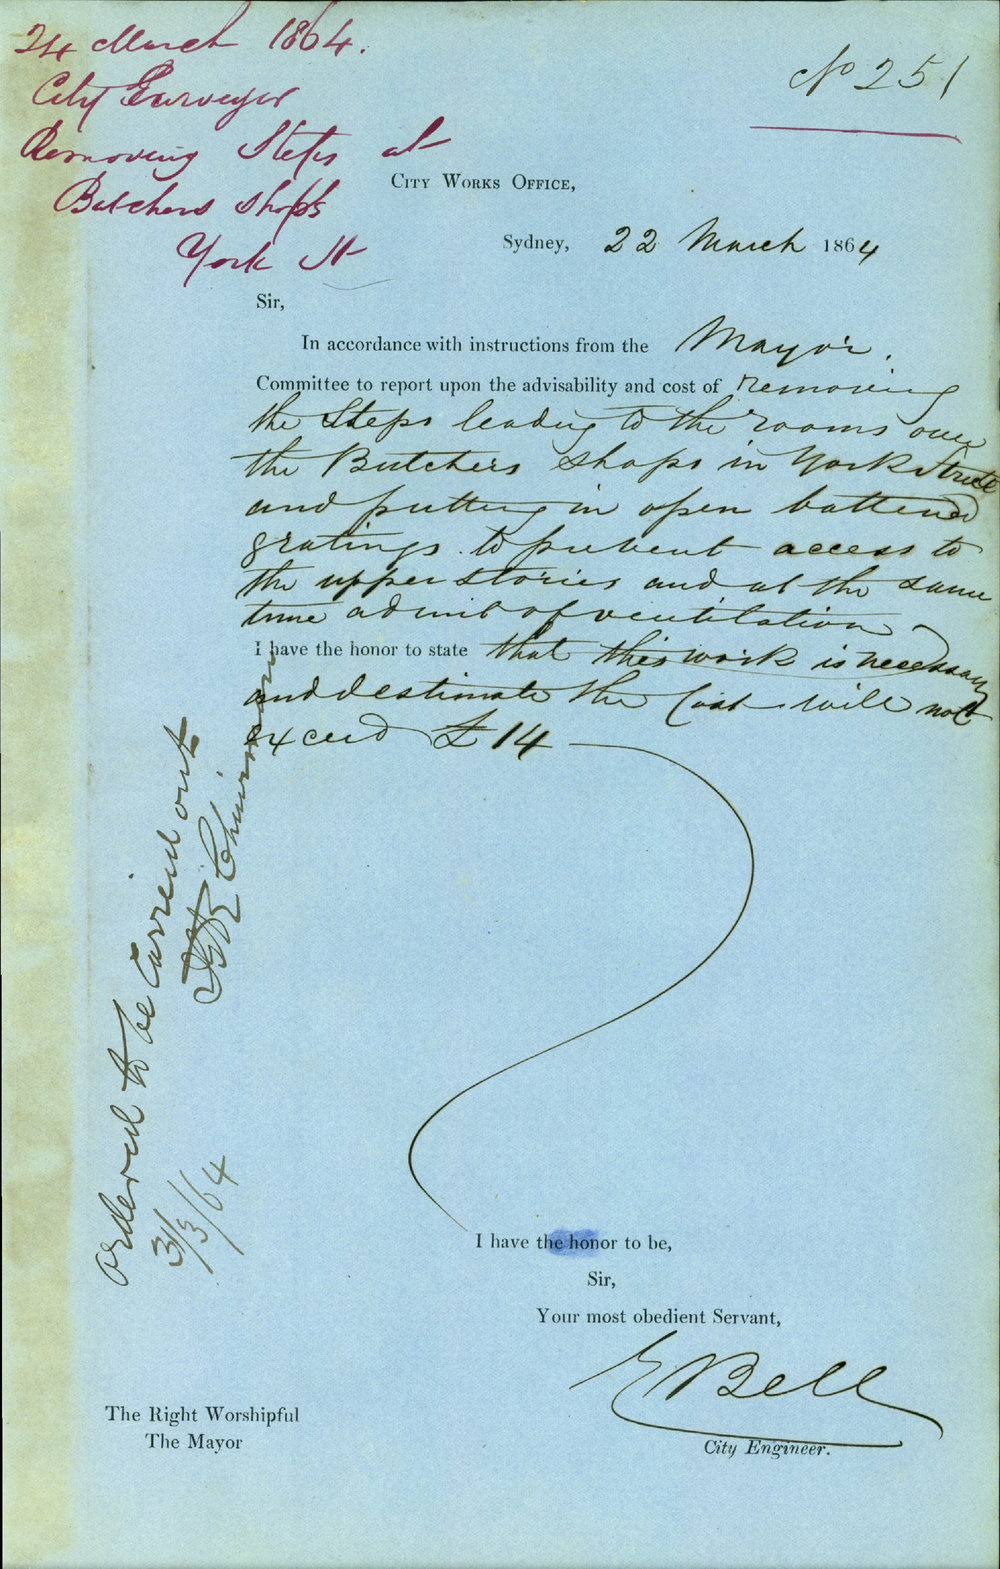 24 March 1864.
City Surveyor
Removing Steps at
Butchers shops
York St
No 251
City Works Office,
Sydney, 22 March 1864
Sir,
In accordance with instructions from the Mayor.
Committee to report upon the advisability and cost of removing
the Steps leading to the rooms over
the Butchers shops in York Street
and putting in open battened
gratings to prevent access to
the upper stories and at the same
time admit of ventilation
I have the honor to state that this work is necessary
and estimate the Cost will not
exceed £14
ordered to be Carried out
Chairman
31/3/64
I have the honor to be,
Sir,
Your most obedient Servant,
E Bell
City Engineer.
The Right Worshipful
The Mayor